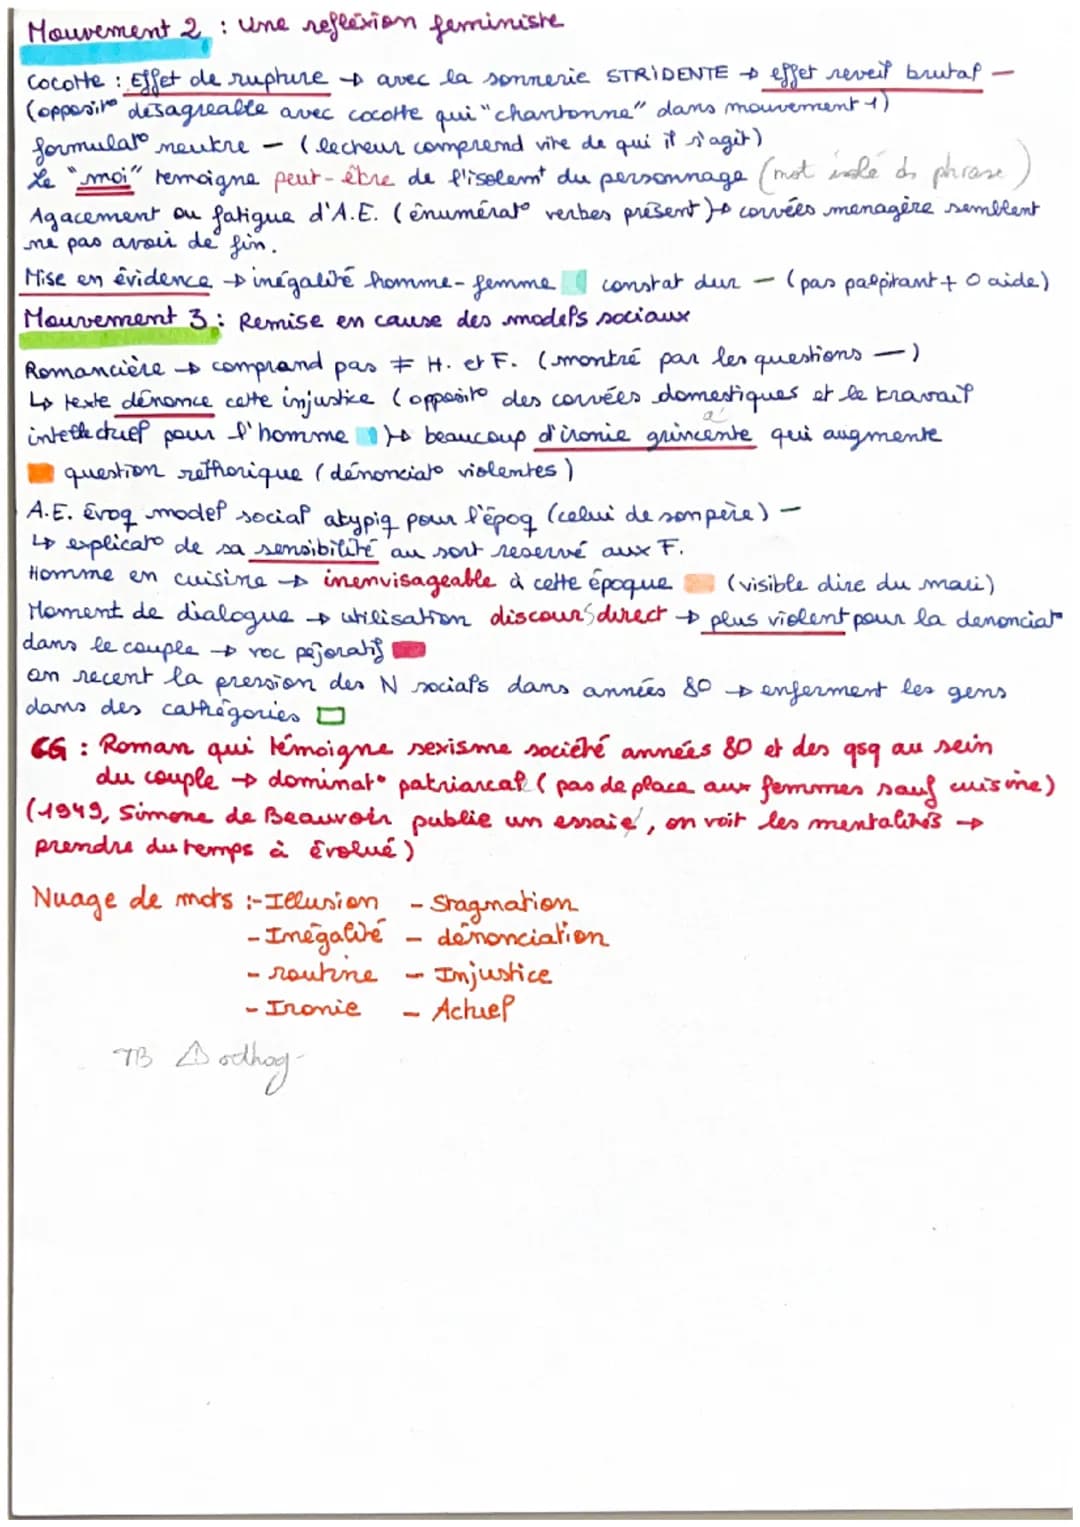 Mouvement 2 : Une refléxion feministe
Cocotte : Effet de rupture → avec la sonnerie STRIDENTE → effet reveil brutal —
(opposit° désagreable avec cocotte qui "chantonne" dans mouvement 1)
formulat° neutre — (lecteur comprend vite de qui il s'agit)
Le "moi" temoigne peut-être de l'isolemt du personnage (mot isolé ds phrase)
Agacement ou fatigue d'A.E. (énumérat° verbes présent) → corvées menagère semblent
ne pas avoir de fin.
Mise en évidence → inégalité homme-femme constat dur — (pas palpitant + 0 aide)
Mouvement 3 : Remise en cause des models sociaux
Romancière → comprend pas ≠ H. et F. (montré par les questions —)
↳ texte dénonce cette injustice (opposit° des corvées domestiques et le travail
intellectuel pour l'homme ) → beaucoup d'ironie grinçente qui augmente
a
question réthorique (dénonciat° violentes)
A.E. évoq model social atypiq pour l'époq (celui de son père) —
↳ explicat° de sa sensibilité au sort reservé aux F.
Homme en cuisine → inenvisageable à cette époque (visible dire du mari)
Moment de dialogue → utilisation discours direct → plus violent pour la denonciat°
dans le couple → voc péjoratif
on recent la pression des N socials dans années 80 → enferment les gens
dans des cathégories
CG : Roman qui témoigne sexisme société années 80 et des qsq au sein
du couple → dominat° patriarcal (pas de place aux femmes sauf cuisine)
(1949, Simone de Beauvoir publie un essaie, on voit les mentalités →
prendre du temps à évolué)
Nuage de mots : - Illusion - Stagnation
- Inégalité - dénonciation
- routine - Injustice
- Ironie - Actuel
TB ⚠ orthog-